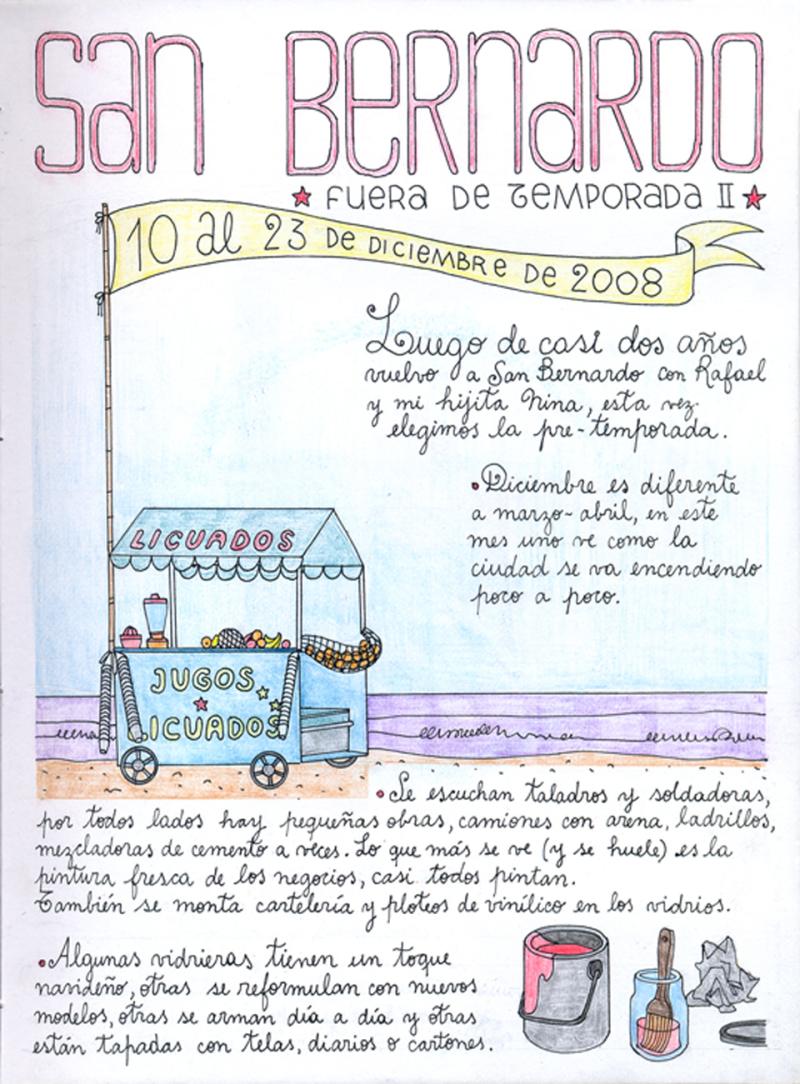 San Bernardo
★ Fuera de Temporada II ★
10 al 23 de diciembre de 2008
Luego de casi dos años
vuelvo a San Bernardo con Rafael
y mi hijita Nina, esta vez
elegimos la pre-temporada.
• Diciembre es diferente
a marzo-abril, en este
mes uno ve como la
ciudad se va encendiendo
poco a poco.
LICUADOS
JUGOS
LICUADOS
• Se escuchan taladros y soldadoras,
por todos lados hay pequeñas obras, camiones con arena, ladrillos,
mezcladoras de cemento a veces. Lo que más se ve (y se huele) es la
pintura fresca de los negocios, casi todos pintan.
También se monta cartelería y ploteos de vinílico en los vidrios.
• Algunas vidrieras tienen un toque
navideño, otras se reformulan con nuevos
modelos, otras se arman día a día y otras
están tapadas con telas, diarios o cartones.